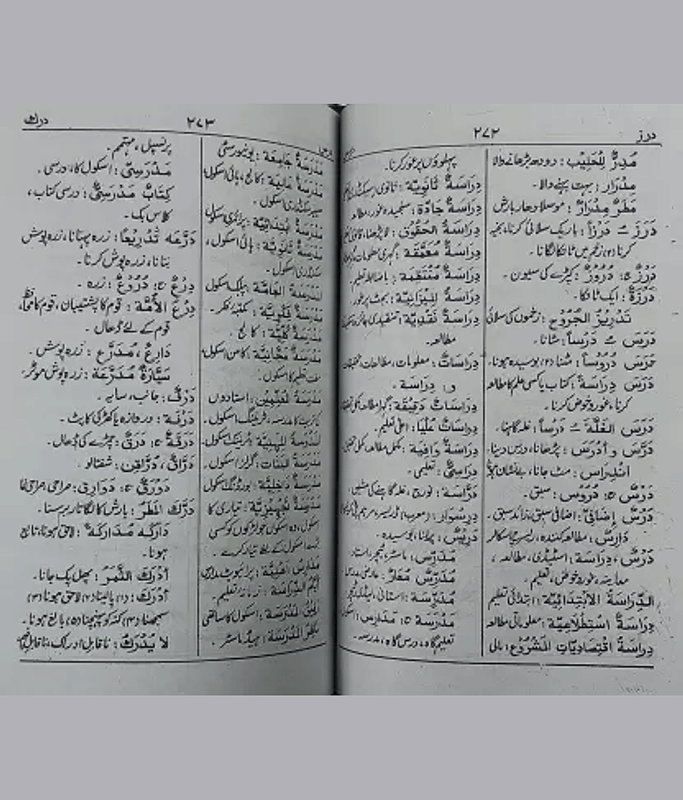 درز
۲۷۲
مُدِرٌّ لِلْحَلِيْب: دودھ بڑھانے والا
مِدْرَار: بہت بہنے والا۔
مَطَرٌ مِدْرَارٌ: موسلادھار بارش
دَرَزَ ـُ دَرْزاً: باریک سلائی کرنا، بخیہ
کرنا (۲) زخم میں ٹانکا لگانا۔
دَرْزٌ ج: دُرُوْزٌ: کپڑے کی سیون۔
دَرْزَةٌ: ایک ٹانکا۔
تَدْرِيْزُ الْجُرُوْحِ: زخموں کی سلائی
دَرَسَ ـُ دَرْساً: مٹانا۔
دَرَسَ دُرُوْساً: مٹنا (۲) بوسیدہ ہونا۔
دَرَسَ دِرَاسَةً: کتاب یا کسی علم کا مطالعہ
کرنا، غور و خوض کرنا۔
دَرَسَ الْغَلَّةَ ـُ دَرْساً: غلہ گاہنا۔
دَرَّسَ و أدْرَسَ: پڑھانا، درس دینا۔
انْدِرَاس: مٹ جانا، بے نشان ہونا
دَرْسٌ ج: دُرُوْس: سبق۔
دَرْسٌ إضَافِيٌّ: اضافی سبق، زائد سبق۔
دَارِسٌ: مطالعہ کنندہ، ریسرچ اسکالر
دَرْسٌ، دِرَاسَة: اسٹیڈی، مطالعہ،
معاینہ، غور و خوض، تعلیم۔
الدِّرَاسَةُ الابْتِدَائِيَّة: ابتدائی تعلیم
دِرَاسَةٌ اسْتِطْلَاعِيَّة: معلوماتی مطالعہ
دِرَاسَةُ اقْتِصَادِيَّاتِ الْمَشْرُوْعِ: مالی
پہلوؤں پر غور کرنا۔
دِرَاسَةٌ ثَانَوِيَّة: ثانوی
دِرَاسَةٌ جَادَّة: سنجیدہ غور، مطالعہ
دِرَاسَةُ الْحُقُوْقِ:
دِرَاسَةٌ مُعَمَّقَة: گہری معلومات
دِرَاسَةٌ مُنْتَظِمَة: باضابطہ تعلیم۔
دِرَاسَةُ الْمِيْزَانِيَّة: بجٹ پر غور
دِرَاسَةٌ نَقْدِيَّة: تنقیدی جائزہ
مطالعہ۔
دِرَاسَاتٌ: معلومات، مطالعات
و: دراسة۔
دِرَاسَاتٌ دَقِيْقَة: گہرا مطالعہ
دِرَاسَاتٌ عُلْيَا: اعلیٰ تعلیم۔
دِرَاسَةٌ وَافِيَة: مکمل مطالعہ
دِرَاسِيٌّ: تعلیمی۔
دَرَّاسَة: غلہ گاہنے کی مشین۔
دِرِيْسْوَار: (معرب)
دَرِيْس: بوسیدہ۔
مُدَرِّس: ماسٹر، ٹیچر، استاد
مُدَرِّسٌ مُعَارٌ: عارضی مدرس
مُدَرِّسَة: استانی، لیڈی ٹیچر
مَدْرَسَة ج: مَدَارِس: اسکول
تعلیم گاہ، درس گاہ، مدرسہ۔
درک
۲۷۳
مَدْرَسَةٌ جَامِعَة: یونیورسٹی
مَدْرَسَةٌ عَالِيَة: کالج، ہائی اسکول
سیکنڈری اسکول۔
مَدْرَسَةٌ ابْتِدَائِيَّة: پرائمری اسکول
مَدْرَسَةٌ ثَانَوِيَّة: ہائی اسکول،
سیکنڈری اسکول۔
الْمَدْرَسَةُ الْعَامَّة: پبلک اسکول
مَدْرَسَةٌ
مَدْرَسَةٌ كُلِّيَّة: کالج۔
مَدْرَسَةٌ مَجَّانِيَّة:
مفت تعلیم کا اسکول۔
مَدْرَسَةُ الْمُعَلِّمِيْن: استادوں
کا مدرسہ، ٹریننگ اسکول۔
الْمَدْرَسَةُ الْمِهْنِيَّة: ٹریننگ اسکول
مَدْرَسَةُ الْبَنَات: گرلز اسکول۔
مَدْرَسَةٌ دَاخِلِيَّة: بورڈنگ اسکول
مَدْرَسَةٌ تَجْهِيْزِيَّة: تیاری کا
اسکول، وہ اسکول جو لڑکوں کو کسی
اسکول کے لئے تیار کرے۔
مَدَارِسُ أهْلِيَّة: پرائیویٹ مدارس
أيَّامُ الدِّرَاسَة: زمانہ تعلیم۔
رَفِيْقُ الْمَدْرَسَة: اسکول کا ساتھی
نَاظِرُ الْمَدْرَسَة: ہیڈ ماسٹر۔
پرنسپل، مہتمم۔
مَدْرَسِيٌّ: اسکول کا، درسی۔
كِتَابٌ مَدْرَسِيٌّ: درسی کتاب،
کلاس بک۔
دَرَّعَه تَدْرِيْعًا: زرہ پہنانا، زرہ پوش
بنانا، زرہ پوش کرنا۔
دِرْعٌ ج: دُرُوْعٌ: زرہ۔
دِرْعُ الأمَّة: قوم کا پشتیبان، قوم کا محافظ،
قوم کے لئے ڈھال۔
دَارِعٌ، مُدَرَّع: زرہ پوش۔
سَيَّارَةٌ مُدَرَّعَة: زرہ پوش موٹر۔
دَرْفٌ: جانب، سایہ۔
دَرْفَة: دروازہ یا کھڑکی کا پٹ۔
دَرَقَةٌ ج: دَرَقٌ: چمڑے کی ڈھال۔
دُرَّاقٌ، دُرَّاقِن: شفتالو
دَوْرَقٌ ج: دَوَارِق: صراحی، صراحی نما
دَرَّكَ الْمَطَرُ: بارش کا لگاتار برسنا۔
دَارَكَه مُدَارَكَة: لاحق ہونا، تابع
ہونا۔
أدْرَكَ الثَّمَرُ: پھل پک جانا۔
أدْرَكَ: پالینا (۲) لاحق ہونا (۳)
سمجھنا (۴) کنہ کو پہنچنا (۵) بالغ ہونا۔
لا يُدْرَكُ: ناقابل ادراک، ناقابل فہم